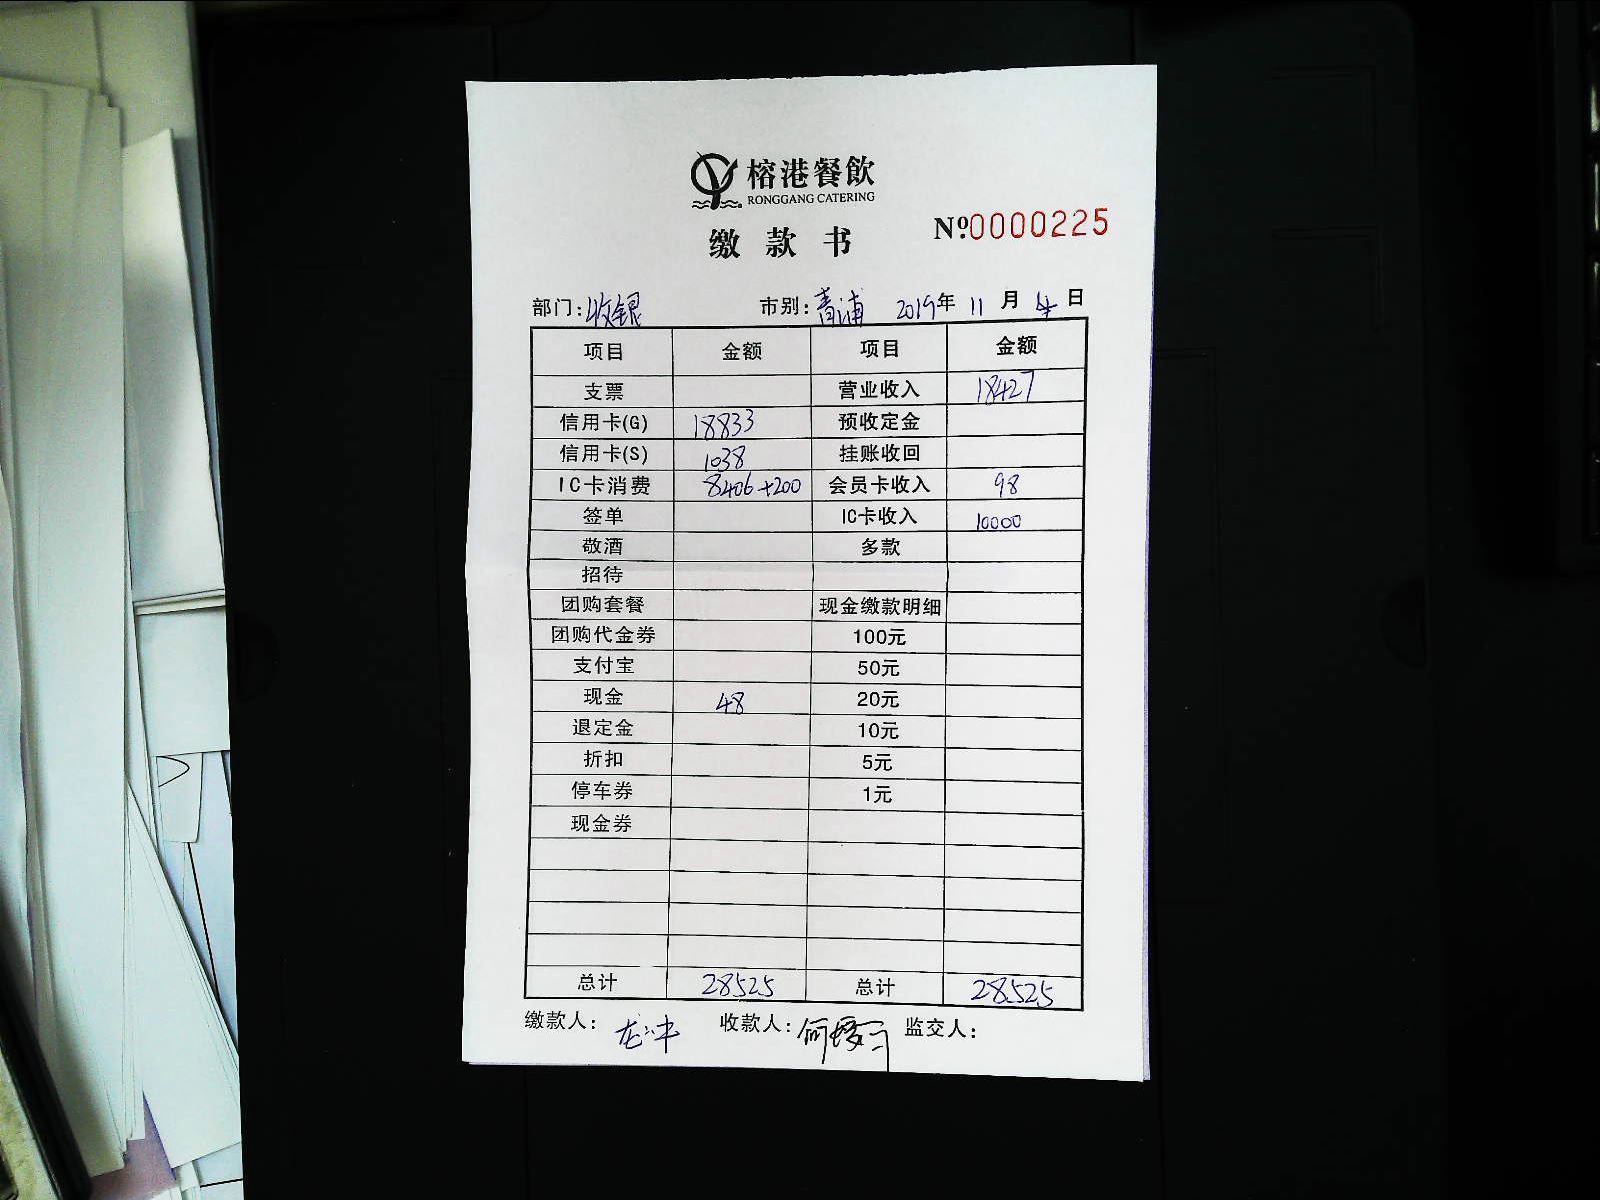 榕港餐飲
RONGGANG CATERING
缴款书
№0000225
部门:收银 市别:青浦 2019年11月4日
项目 金额 项目 金额
支票 营业收入 18427
信用卡(G) 18833 预收定金
信用卡(S) 1038 挂账收回
IC卡消费 8406+200 会员卡收入 98
签单 IC卡收入 10000
敬酒 多款
招待
团购套餐 现金缴款明细
团购代金券 100元
支付宝 50元
现金 48 20元
退定金 10元
折扣 5元
停车券 1元
现金券
总计 28525 总计 28525
缴款人: 收款人: 监交人: